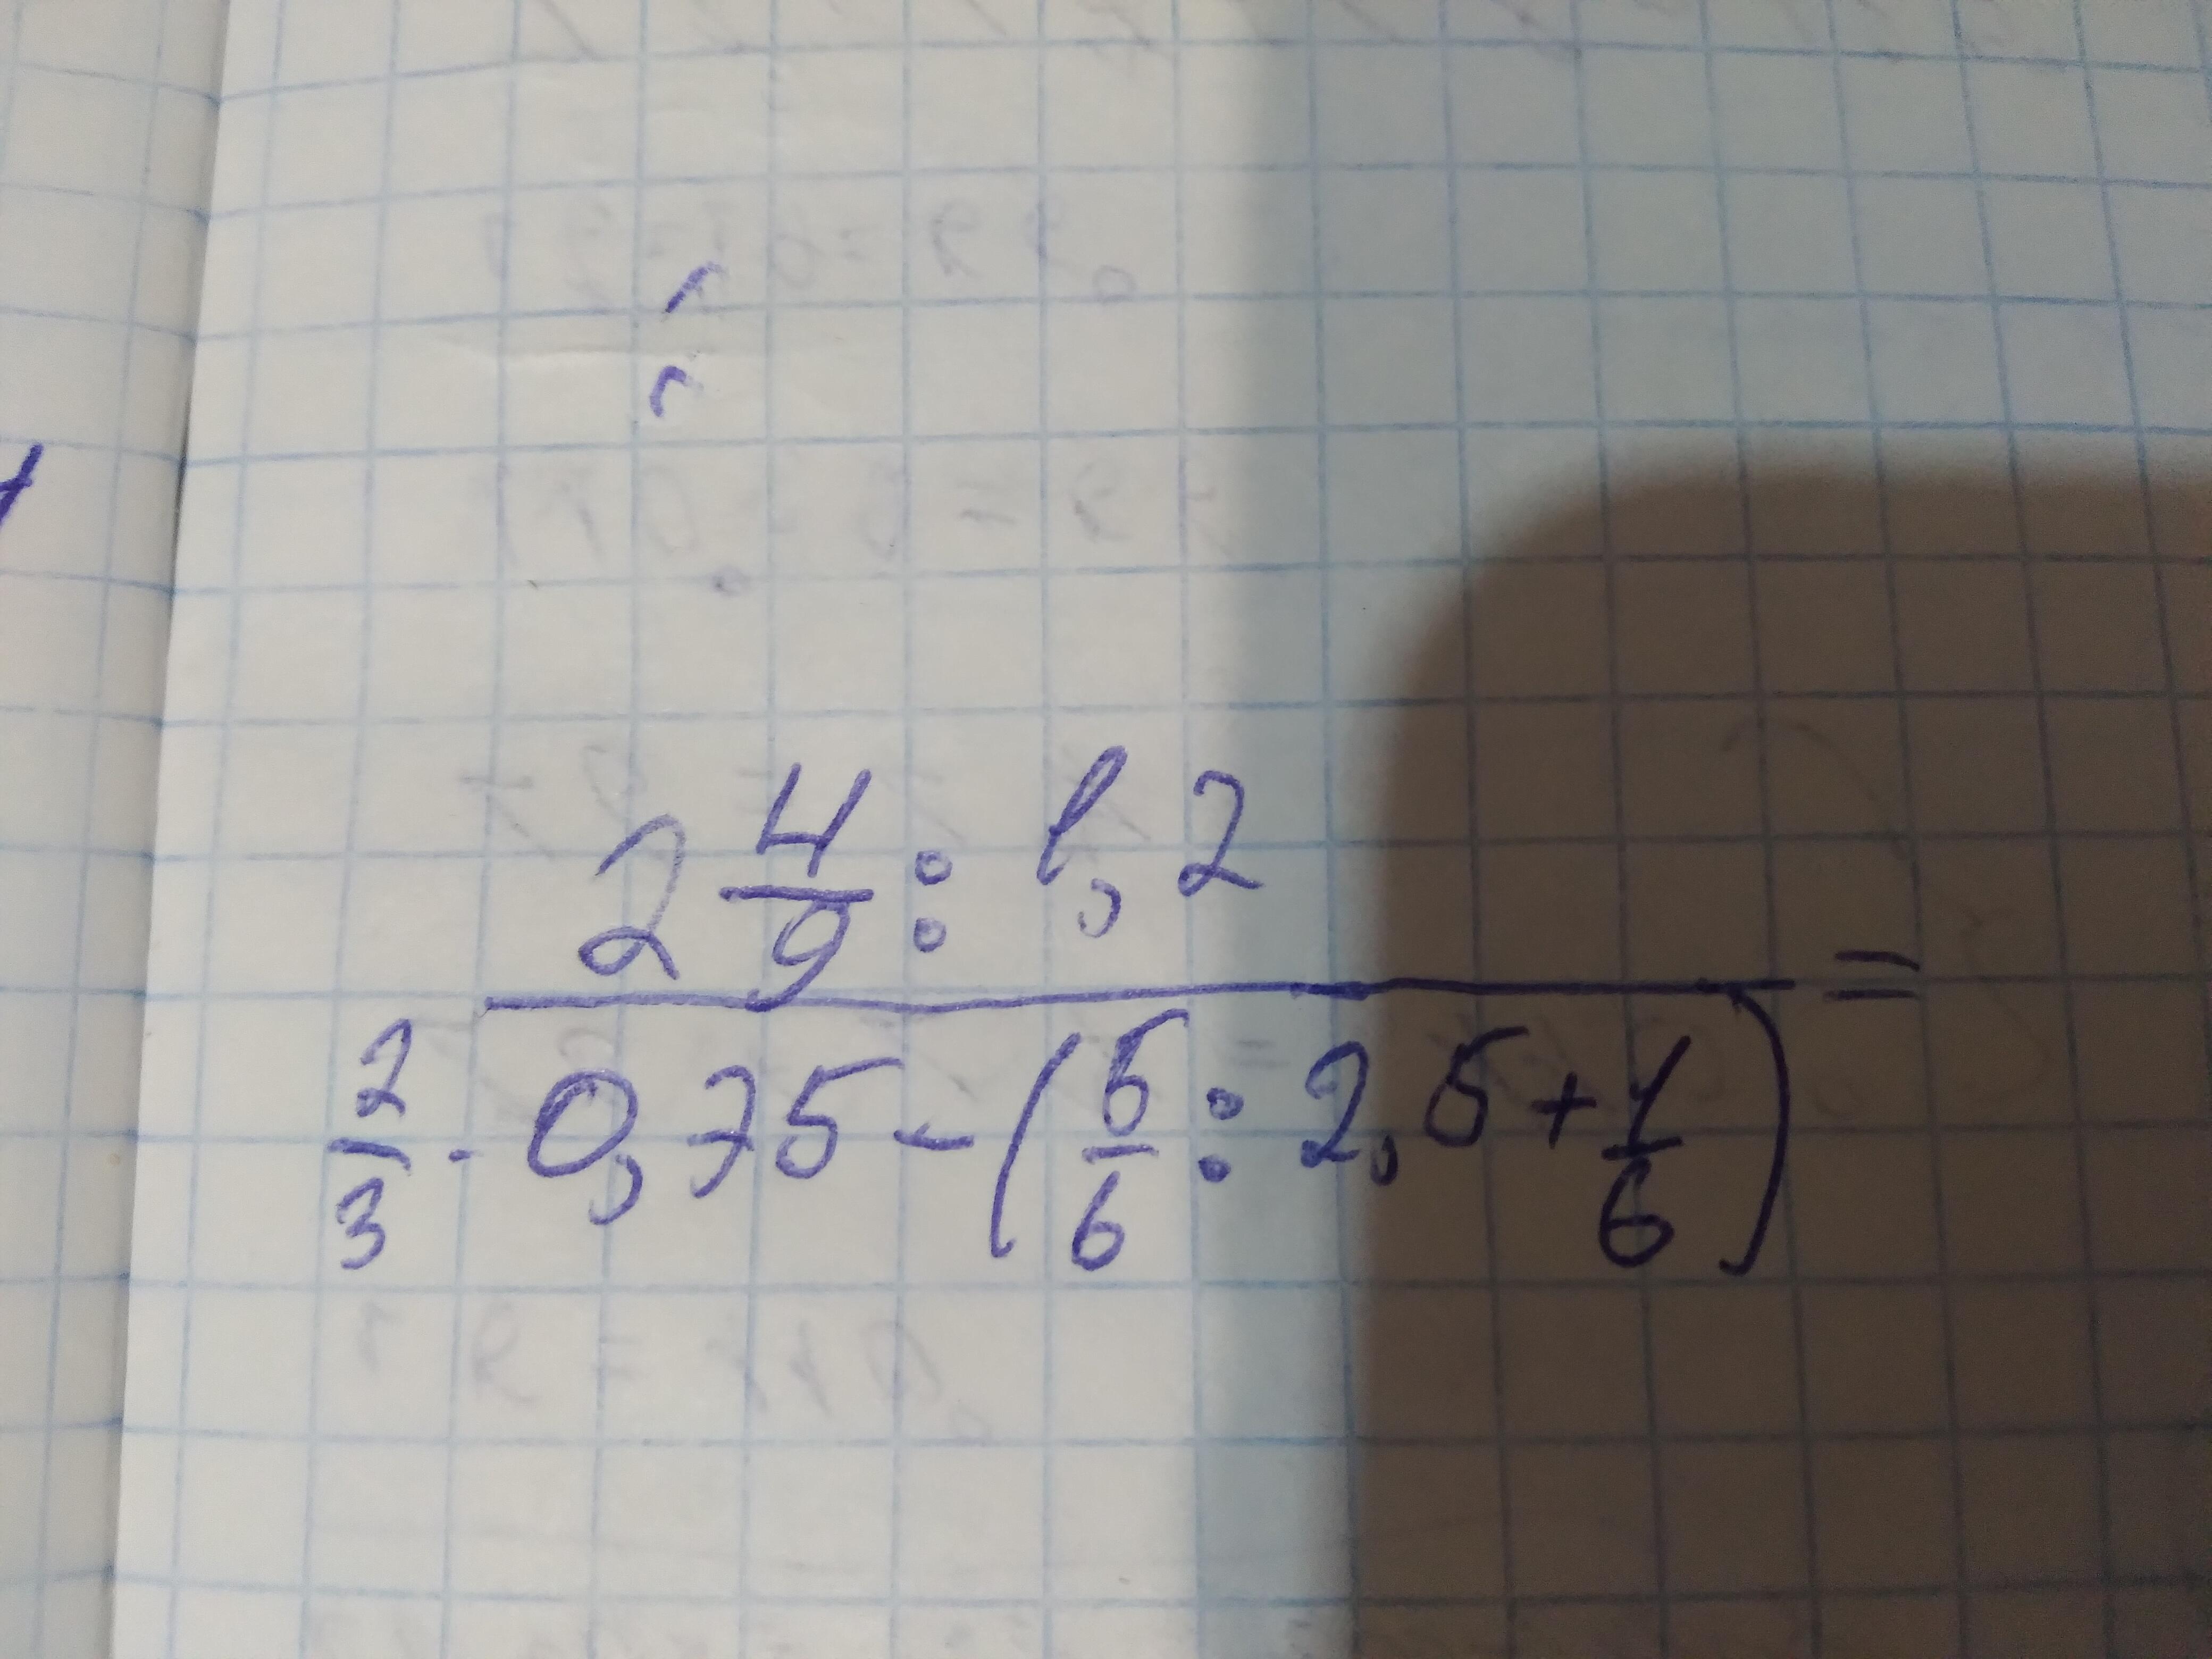 2 4/9 : 1,2 =
2/3 · 0,75 - (5/6 : 2,5 + 1/6)